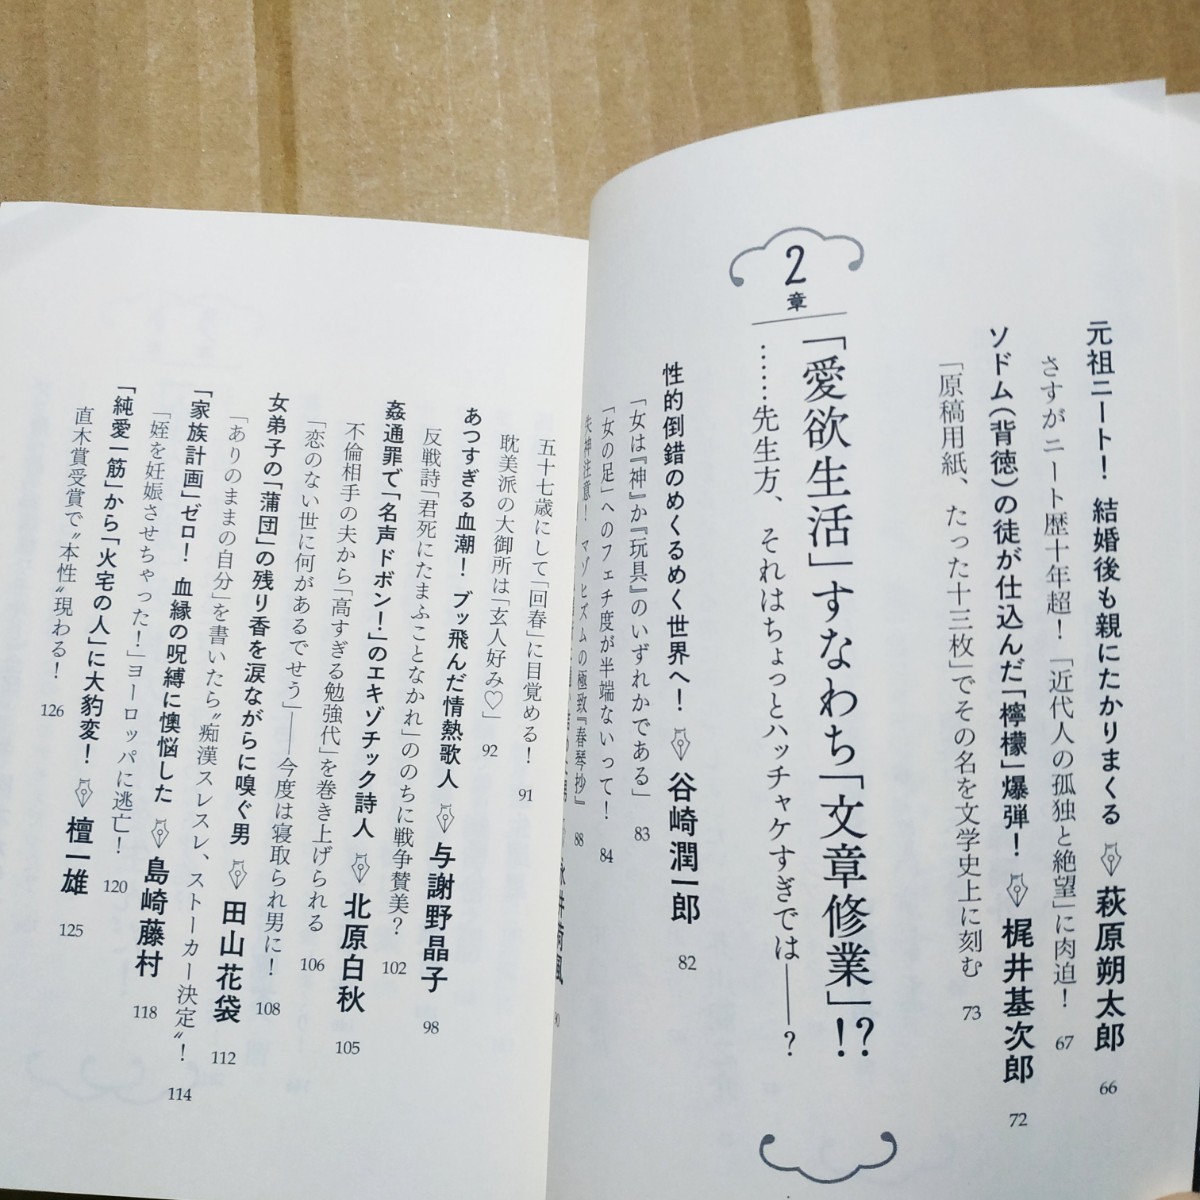 元祖ニート！ 結婚後も親にたかりまくる 萩原朔太郎 66
さすがニート歴十年超！「近代人の孤独と絶望」に肉迫！ 67
ソドム（背徳）の徒が仕込んだ「檸檬」爆弾！ 梶井基次郎 72
「原稿用紙、たった十三枚」でその名を文学史上に刻む 73
2章
「愛欲生活」すなわち「文章修業」!?
……先生方、それはちょっとハッチャケすぎでは——？
性的倒錯のめくるめく世界へ！ 谷崎潤一郎 82
「女は『神』か『玩具』のいずれかである」 83
「女の足」へのフェチ度が半端ないって！ 84
失神注意！ マゾヒズムの極致『春琴抄』 88
永井荷風 90
五十七歳にして「回春」に目覚める！ 91
耽美派の大御所は「玄人好み♡」 92
あつすぎる血潮！ ブッ飛んだ情熱歌人 与謝野晶子 98
反戦詩「君死にたまふことなかれ」ののちに戦争賛美？ 102
姦通罪で「名声ドボン！」のエキゾチック詩人 北原白秋 105
不倫相手の夫から「高すぎる勉強代」を巻き上げられる 106
「恋のない世に何があるでせう」——今度は寝取られ男に！ 108
女弟子の「蒲団」の残り香を涙ながらに嗅ぐ男 田山花袋 112
「ありのままの自分」を書いたら〝痴漢スレスレ、ストーカー決定〟！ 114
「家族計画」ゼロ！ 血縁の呪縛に懊悩した 島崎藤村 118
「姪を妊娠させちゃった！」ヨーロッパに逃亡！ 120
「純愛一筋」から「火宅の人」に大豹変！ 檀一雄 125
直木賞受賞で〝本性〟現わる！ 126